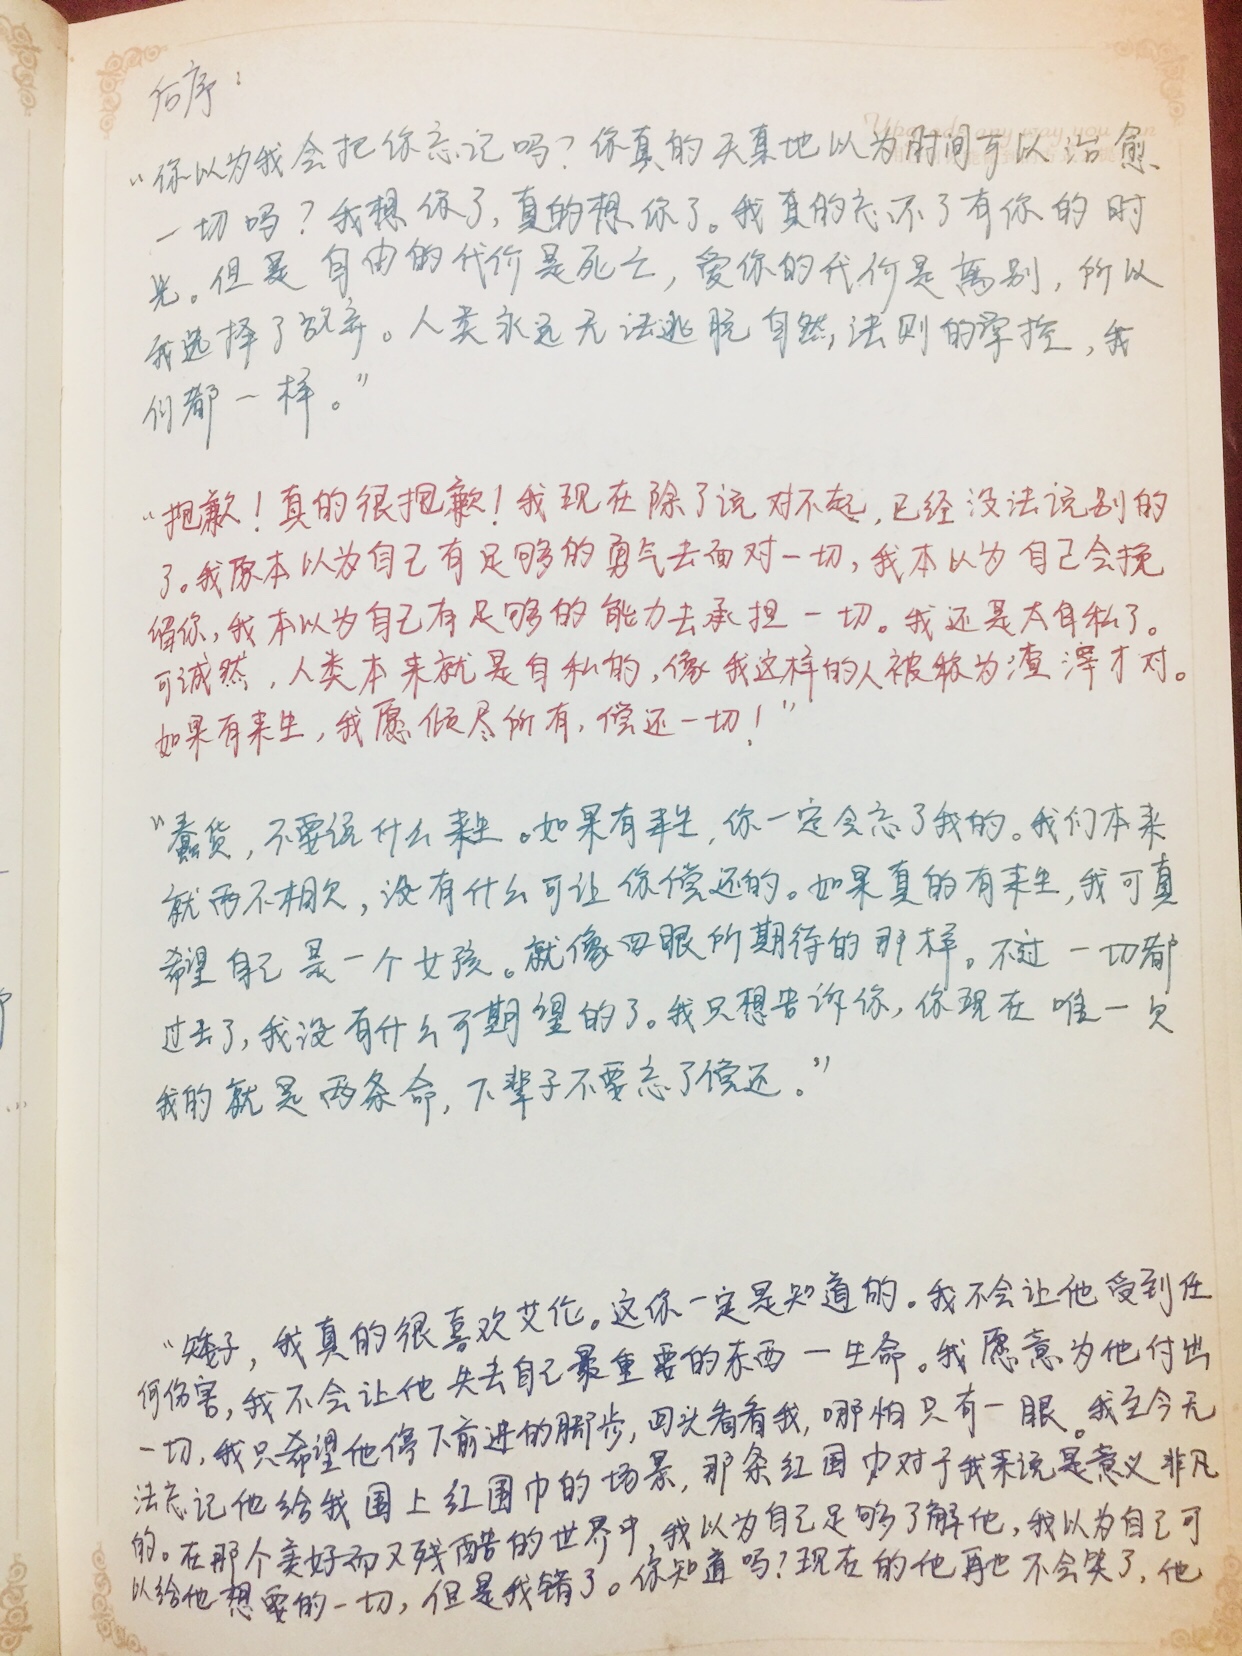 后序：
“你以为我会把你忘记吗？你真的天真地以为时间可以治愈
一切吗？我想你了，真的想你了。我真的忘不了有你的时
光。但是自由的代价是死亡，爱你的代价是离别，所以
我选择了放弃。人类永远无法逃脱自然法则的掌控，我
们都一样。”
“抱歉！真的很抱歉！我现在除了说对不起，已经没法说别的
了。我原本以为自己有足够的勇气去面对一切，我本以为自己会挽
留你，我本以为自己有足够的能力去承担一切。我还是太自私了。
可诚然，人类本来就是自私的，像我这样的人被称为渣滓才对。
如果有来生，我愿倾尽所有，偿还一切！”
“蠢货，不要说什么来生。如果有来生，你一定会忘了我的。我们本来
就两不相欠，没有什么可让你偿还的。如果真的有来生，我可真
希望自己是一个女孩。就像四眼所期待的那样。不过一切都
过去了，我没有什么可期望的了。我只想告诉你，你现在唯一欠
我的就是两条命，下辈子不要忘了偿还。”
“矮子，我真的很喜欢艾伦。这你一定是知道的。我不会让他受到任
何伤害，我不会让他失去自己最重要的东西一生命。我愿意为他付出
一切，我只希望他停下前进的脚步，回头看看我，哪怕只有一眼。我至今无
法忘记他给我围上红围巾的场景，那条红围巾对于我来说是意义非凡
的。在那个美好而又残酷的世界中，我以为自己足够了解他，我以为自己可
以给他想要的一切，但是我错了。你知道吗？现在的他再也不会笑了，他